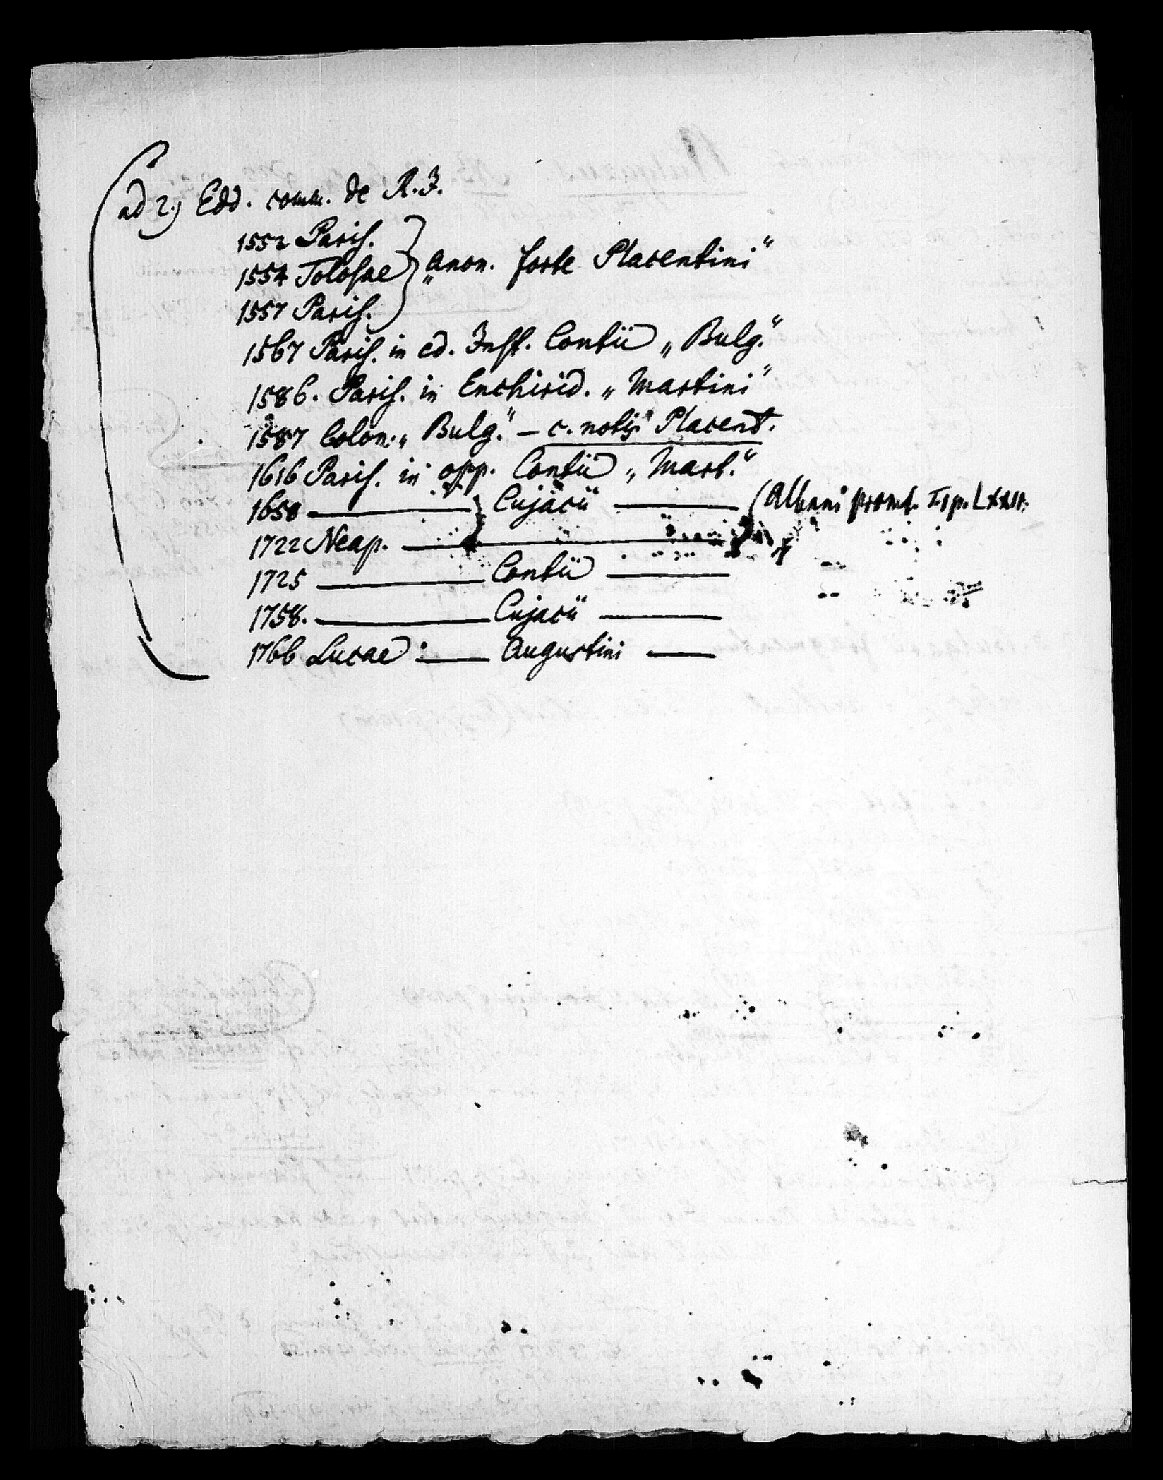 ad 2.) Edd. comm. de R. J.
1552 Paris.
1554 Tolosae } „Anon. forte Placentini“
1557 Paris.
1567 Paris. in ed. Inst. Contii „Bulg.“
1586. Paris. in Enchirid. „Martini“
1587 Colon. „Bulg.“ – c. notis Placent.
1616 Paris. in opp. Contii „Mart.“
1658 —— Cujacii —— (Albani promt. I, p. LXXII.
1722 Neap. ——
1725 —— Contii ——
1758. —— Cujacii ——
1766 Lucae : —— Augustini ——